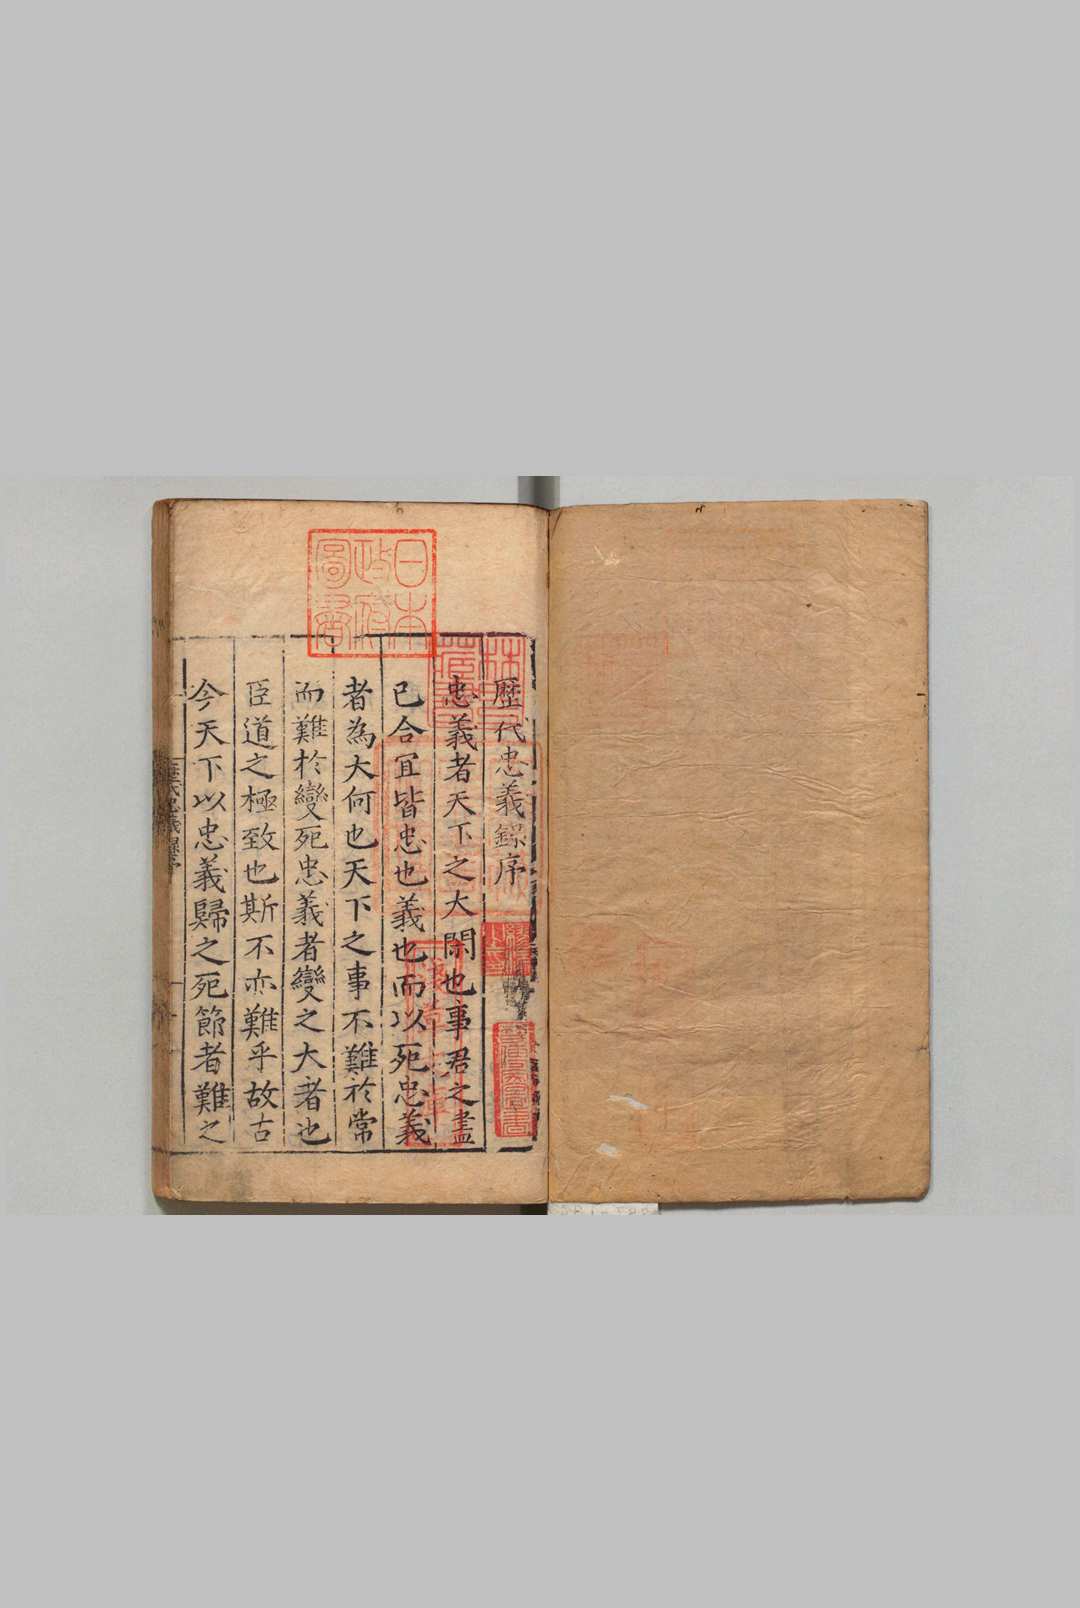 歷代忠義錄序
忠義者天下之大閑也事君之盡
已合宜皆忠也義也而以死忠義
者為大何也天下之事不難於常
而難於變死忠義者變之大者也
臣道之極致也斯不亦難乎故古
今天下以忠義歸之死節者難之
日本
政府
圖書